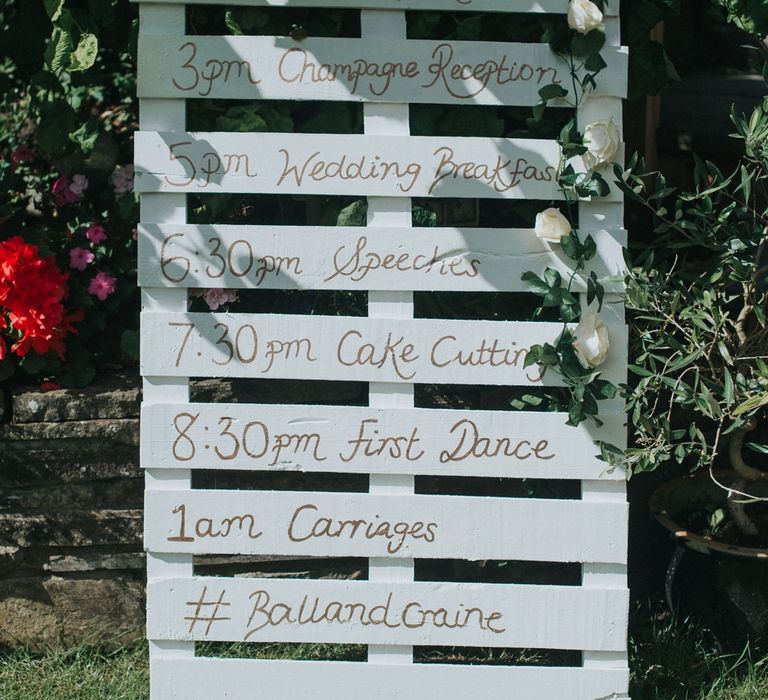 3pm Champagne Reception
5pm Wedding Breakfast
6:30pm Speeches
7:30pm Cake Cutting
8:30pm First Dance
1am Carriages
#BallandCraine